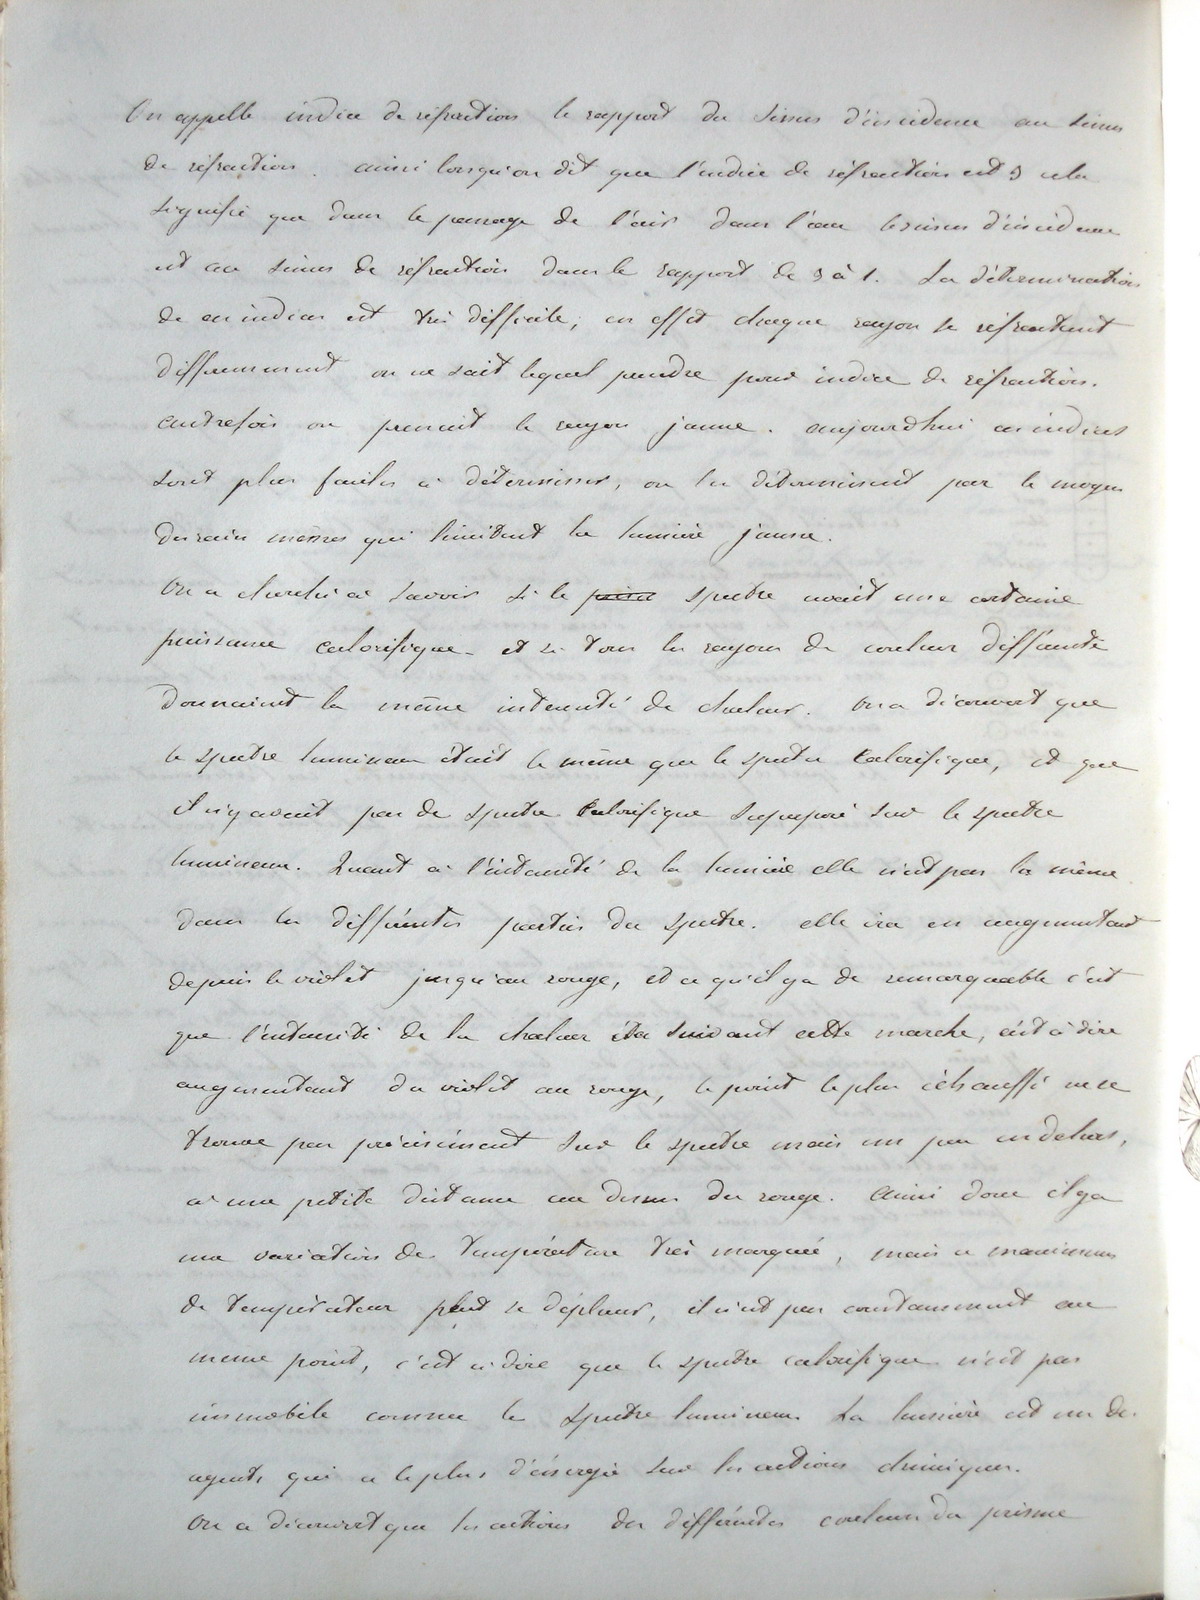 On appelle indice de réfraction le rapport du sinus d'incidence au sinus
de réfraction. ainsi lorsqu'on dit que l'indice de réfraction est 9 cela
signifie que dans le passage de l'air dans l'eau le sinus d'incidence
est au sinus de réfraction dans le rapport de 9 à 1. La détermination
de ces indices est très difficile, en effet chaque rayon se réfractant
différemment on ne sait lequel prendre pour indice de réfraction.
autrefois on prenait le rayon jaune. aujourdhui ces indices
sont plus faciles à déterminer, on les déterminent par le moyen
des raies mêmes qui limitent la lumière jaune.
On a cherché à savoir si le spectre avait une certaine
puissance calorifique et si tous les rayons de couleur différente
donnaient la même intensité de chaleur. On a découvert que
le spectre lumineux était le même que le spectre calorifique, et que
il n'y avait pas de spectre calorifique superposé sur le spectre
lumineux. Quant à l'intensité de la lumière elle n'est pas la même
dans les différentes parties du spectre. elle ira en augmentant
depuis le violet jusqu'au rouge, et ce qu'il y a de remarquable c'est
que l'intensité de la chaleur suivant cette marche, c'est à dire
augmentant du violet au rouge, le point le plus échauffé ne se
trouve pas précisément sur le spectre mais un peu en dehors,
à une petite distance au dessus du rouge. Ainsi donc il y a
une variation de température très marquée, mais ce maximum
de température peut se déplacer, il n'est pas constamment au
même point, c'est à dire que le spectre calorifique n'est pas
immobile comme le spectre lumineux. La lumière est un des
agents qui a le plus d'énergie sur les actions chimiques.
On a découvert que les actions des différentes couleurs du prisme